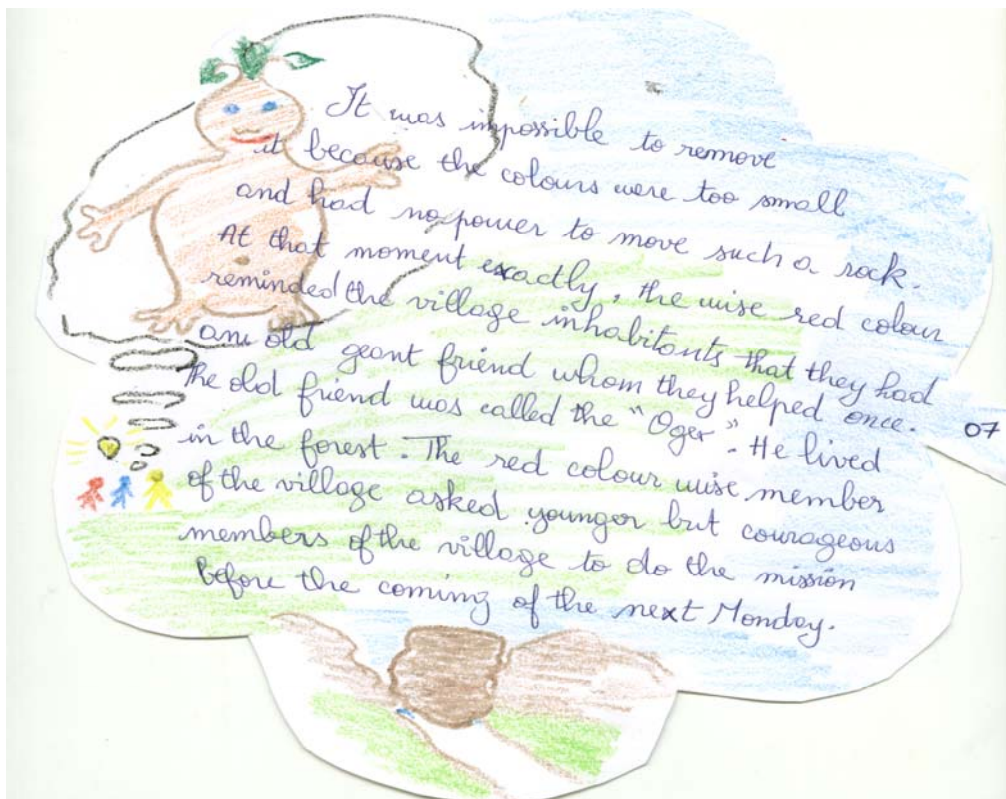 It was impossible to remove
it because the colours were too small
and had no power to move such a rock.
At that moment exactly, the wise red colour
reminded the village inhabitants that they had
an old geant friend whom they helped once.
The old friend was called the "Oger". He lived
in the forest. The red colour wise member
of the village asked younger but courageous
members of the village to do the mission
before the coming of the next Monday.
07